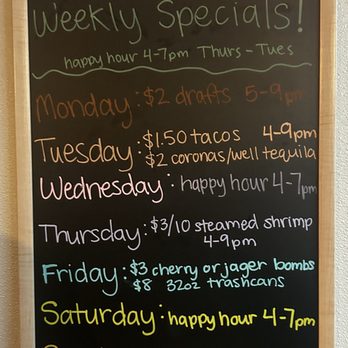 Weekly Specials!
happy hour 4-7pm Thurs - Tues
Monday: $2 drafts 5-9pm
Tuesday: $1.50 tacos 4-9pm
$2 coronas/well tequila
Wednesday: happy hour 4-7pm
Thursday: $3/10 steamed shrimp
4-9pm
Friday: $3 cherry or jager bombs
$8 32oz trashcans
Saturday: happy hour 4-7pm